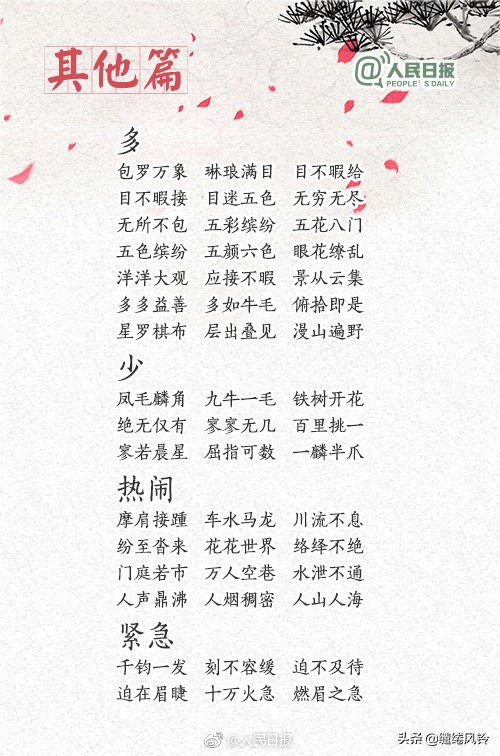 其他篇
@人民日报
PEOPLE'S DAILY
多
包罗万象 琳琅满目 目不暇给
目不暇接 目迷五色 无穷无尽
无所不包 五彩缤纷 五花八门
五色缤纷 五颜六色 眼花缭乱
洋洋大观 应接不暇 景从云集
多多益善 多如牛毛 俯拾即是
星罗棋布 层出叠见 漫山遍野
少
凤毛麟角 九牛一毛 铁树开花
绝无仅有 寥寥无几 百里挑一
寥若晨星 屈指可数 一鳞半爪
热闹
摩肩接踵 车水马龙 川流不息
纷至沓来 花花世界 络绎不绝
门庭若市 万人空巷 水泄不通
人声鼎沸 人烟稠密 人山人海
紧急
千钧一发 刻不容缓 迫不及待
迫在眉睫 十万火急 燃眉之急
@人民日报
头条 @缠绻风铃